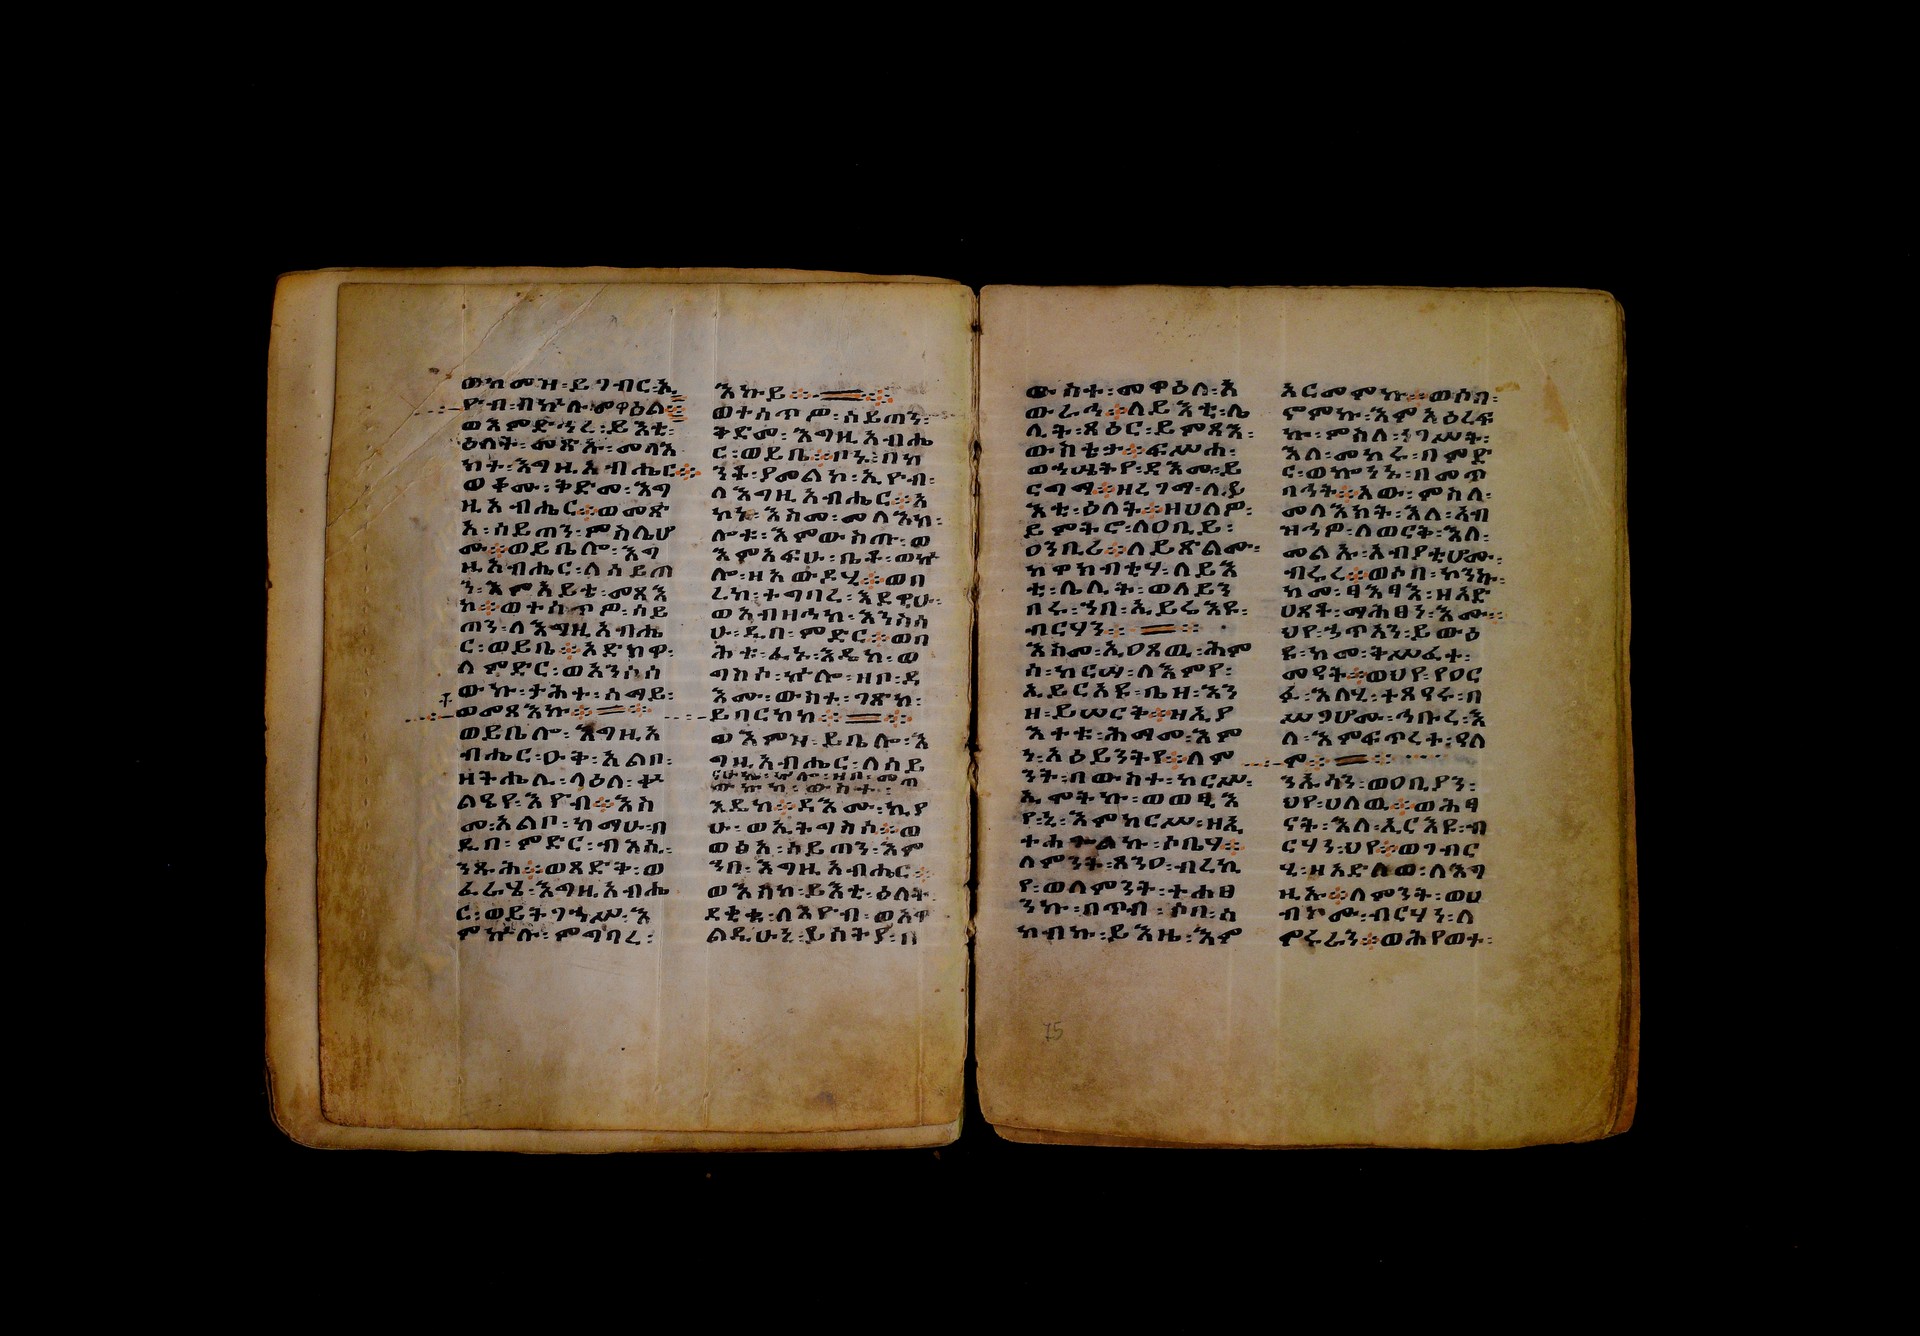 ወከመዝ፡ይገብር፡ኢ
ዮብ፡በኵሉ፡መዋዕል፡
ወእምድኅረ፡ይእቲ፡
ዕለት፡መጽኡ፡መላእ
ክት፡እግዚአብሔር፡፡
ወቆሙ፡ቅድመ፡እግ
ዚአብሔር፡፡ወመጽ
አ፡ሰይጠን፡ምስሌሆ
ሙ፡፡ወይቤሎ፡እግ
ዚአብሔር፡ለሰይጠ
ን፡እምአይቴ፡መጻእ
ከ፡፡ወተሰጥዎ፡ሰይ
ጠን፡ለእግዚአብሔ
ር፡ወይቤ፡፡አድከዋ፡
ለምድር፡ወአንሶሰ
ውኩ፡ታሕተ፡ሰማይ፡
ወመጻእኩ፡፡
ወይቤሎ፡እግዚአ
ብሔር፡ዑቅ፡አልቦ፡
ዘትሔሊ፡ላዕለ፡ቍ
ልዔየ፡ኢዮብ፡፡እስ
መ፡አልቦ፡ከማሁ፡በ
ዲበ፡ምድር፡ብእሲ፡
ንጹሕ፡፡ወጻድቅ፡ወ
ፈራሄ፡እግዚአብሔ
ር፡ወይትገኃሥ፡እ
ምኵሉ፡ምግባረ፡
እኩይ፡፡
ወተሰጥዎ፡ሰይጠን፡
ቅድመ፡እግዚአብሔ
ር፡ወይቤ፡፡ቦኑ፡በከ
ንቱ፡ያመልኮ፡ኢዮብ፡
ለእግዚአብሔር፡፡አ
ኮኑ፡እስመ፡መላእከ፡
ሎቱ፡እምውስጡ፡ወ
እምአፍሁ፡ቤቶ፡ወኵ
ሎ፡ዘአውዶሂ፡፡ወባ
ረከ፡ተግባረ፡እደዊሁ፡
ወአብዘኅከ፡እንስሳ
ሁ፡ዲበ፡ምድር፡፡ወባ
ሕቱ፡ፈኑ፡እዴከ፡ወ
ግስስ፡ኵሎ፡ዘቦ፡ዳ
እሙ፡ውስተ፡ገጽከ፡
ይባርከከ፡፡
ወእምዝ፡ይቤሎ፡እ
ግዚአብሔር፡ለሰይ
ናሁኬ፡ኵሎ፡ዘቦ፡መጠ
ውኩከ፡ውስተ፡
እዴከ፡፡ዳእሙ፡ኪያ
ሁ፡ወኢትግስስ፡፡ወ
ወፅአ፡ሰይጠን፡እም
ኀበ፡እግዚአብሔር፡፡
ወእከከ፡ይእቲ፡ዕለት፡
ደቂቁ፡ለኢዮብ፡ወአዋ
ልዲሁኒ፡ይሰትያ፡በ
ውስተ፡መዋዕለ፡እ
ውራኅ፡፡ለይእቲ፡ሌ
ሊት፡ጻዕር፡ይምጻእ፡
ውስቴታ፡፡ፍሥሐ፡
ወኀሤትየ፡ዳእሙ፡ይ
ርግማ፡፡ዘረገማ፡ለይ
እቲ፡ዕለት፡፡ዘሀለዎ፡
ይምትሮ፡ለዐቢይ፡
ዐንበሪ፡፡ለይጽልሙ፡
ከዋክብቲሃ፡ለይእ
ቲ፡ሌሊት፡ወለይን
በሩ፡ኀበ፡ኢይሬእዩ፡
ብርሃን፡፡
እስመ፡ኢዐጸዉ፡ሕም
ሰ፡ከርሣ፡ለእምየ፡
ኢይርአዩ፡ቤዘ፡እን
ዘ፡ይሠርቅ፡፡ዘኢያ
እተቱ፡ሕማመ፡እም
ኔ፡አዕይንትየ፡፡ለም
ንት፡በውስተ፡ከርሥ፡
ኢሞትኩ፡ወወፂእ
የ፡ኒ፡እምከርሥ፡ዘኢ
ተሐጐልኩ፡ሶቤሃ፡፡
ለምንት፡ጸንዐ፡ብረኪ
የ፡ወለምንት፡ተሐፀ
ንኩ፡በጥብ፡ሶበ፡ሰ
ከብኩ፡ይእዜ፡እም
አርመምኩ፡፡ወሶበ፡
ኖምኩ፡እም፡አዕረፍ
ኩ፡ምስለ፡ነገሥት፡
እለ፡መከሩ፡በምድ
ር፡ወኰንኑ፡በመጥ
ባኅት፡፡አው፡ምስለ፡
መላእክት፡እለ፡አብ
ዝኅዎ፡ለወርቅ፡እለ፡
መልኡ፡አብያቲሆሙ፡
ብሩረ፡፡ወሶበ፡ኮንኩ፡
ከመ፡ፃእፃእ፡ዘእድ
ሀጸት፡ማሕፀን፡እሙ፡፡
ህየ፡ኃጥአን፡ይውዕ
ዩ፡ከመ፡ትሥፈተ፡
መዓት፡፡ወህየ፡የዐር
ፉ፡እለሂ፡ተጻዓሩ፡በ
ሥጋሆሙ፡ኅቡረ፡እ
ለ፡እምፍጥረት፡ዓለ
ም፡፡
ንኡሳን፡ወዐቢያን፡
ህየ፡ሀለዉ፡፡ወሕፃ
ናት፡እለ፡ኢርእዩ፡ብ
ርሃን፡ህየ፡፡ወገብር
ሂ፡ዘአድለወ፡ለእግ
ዚኡ፡፡ለምንት፡ወሀ
ብኮሙ፡ብርሃን፡ለ
ምሩራን፡፡ወሕየወተ፡
75